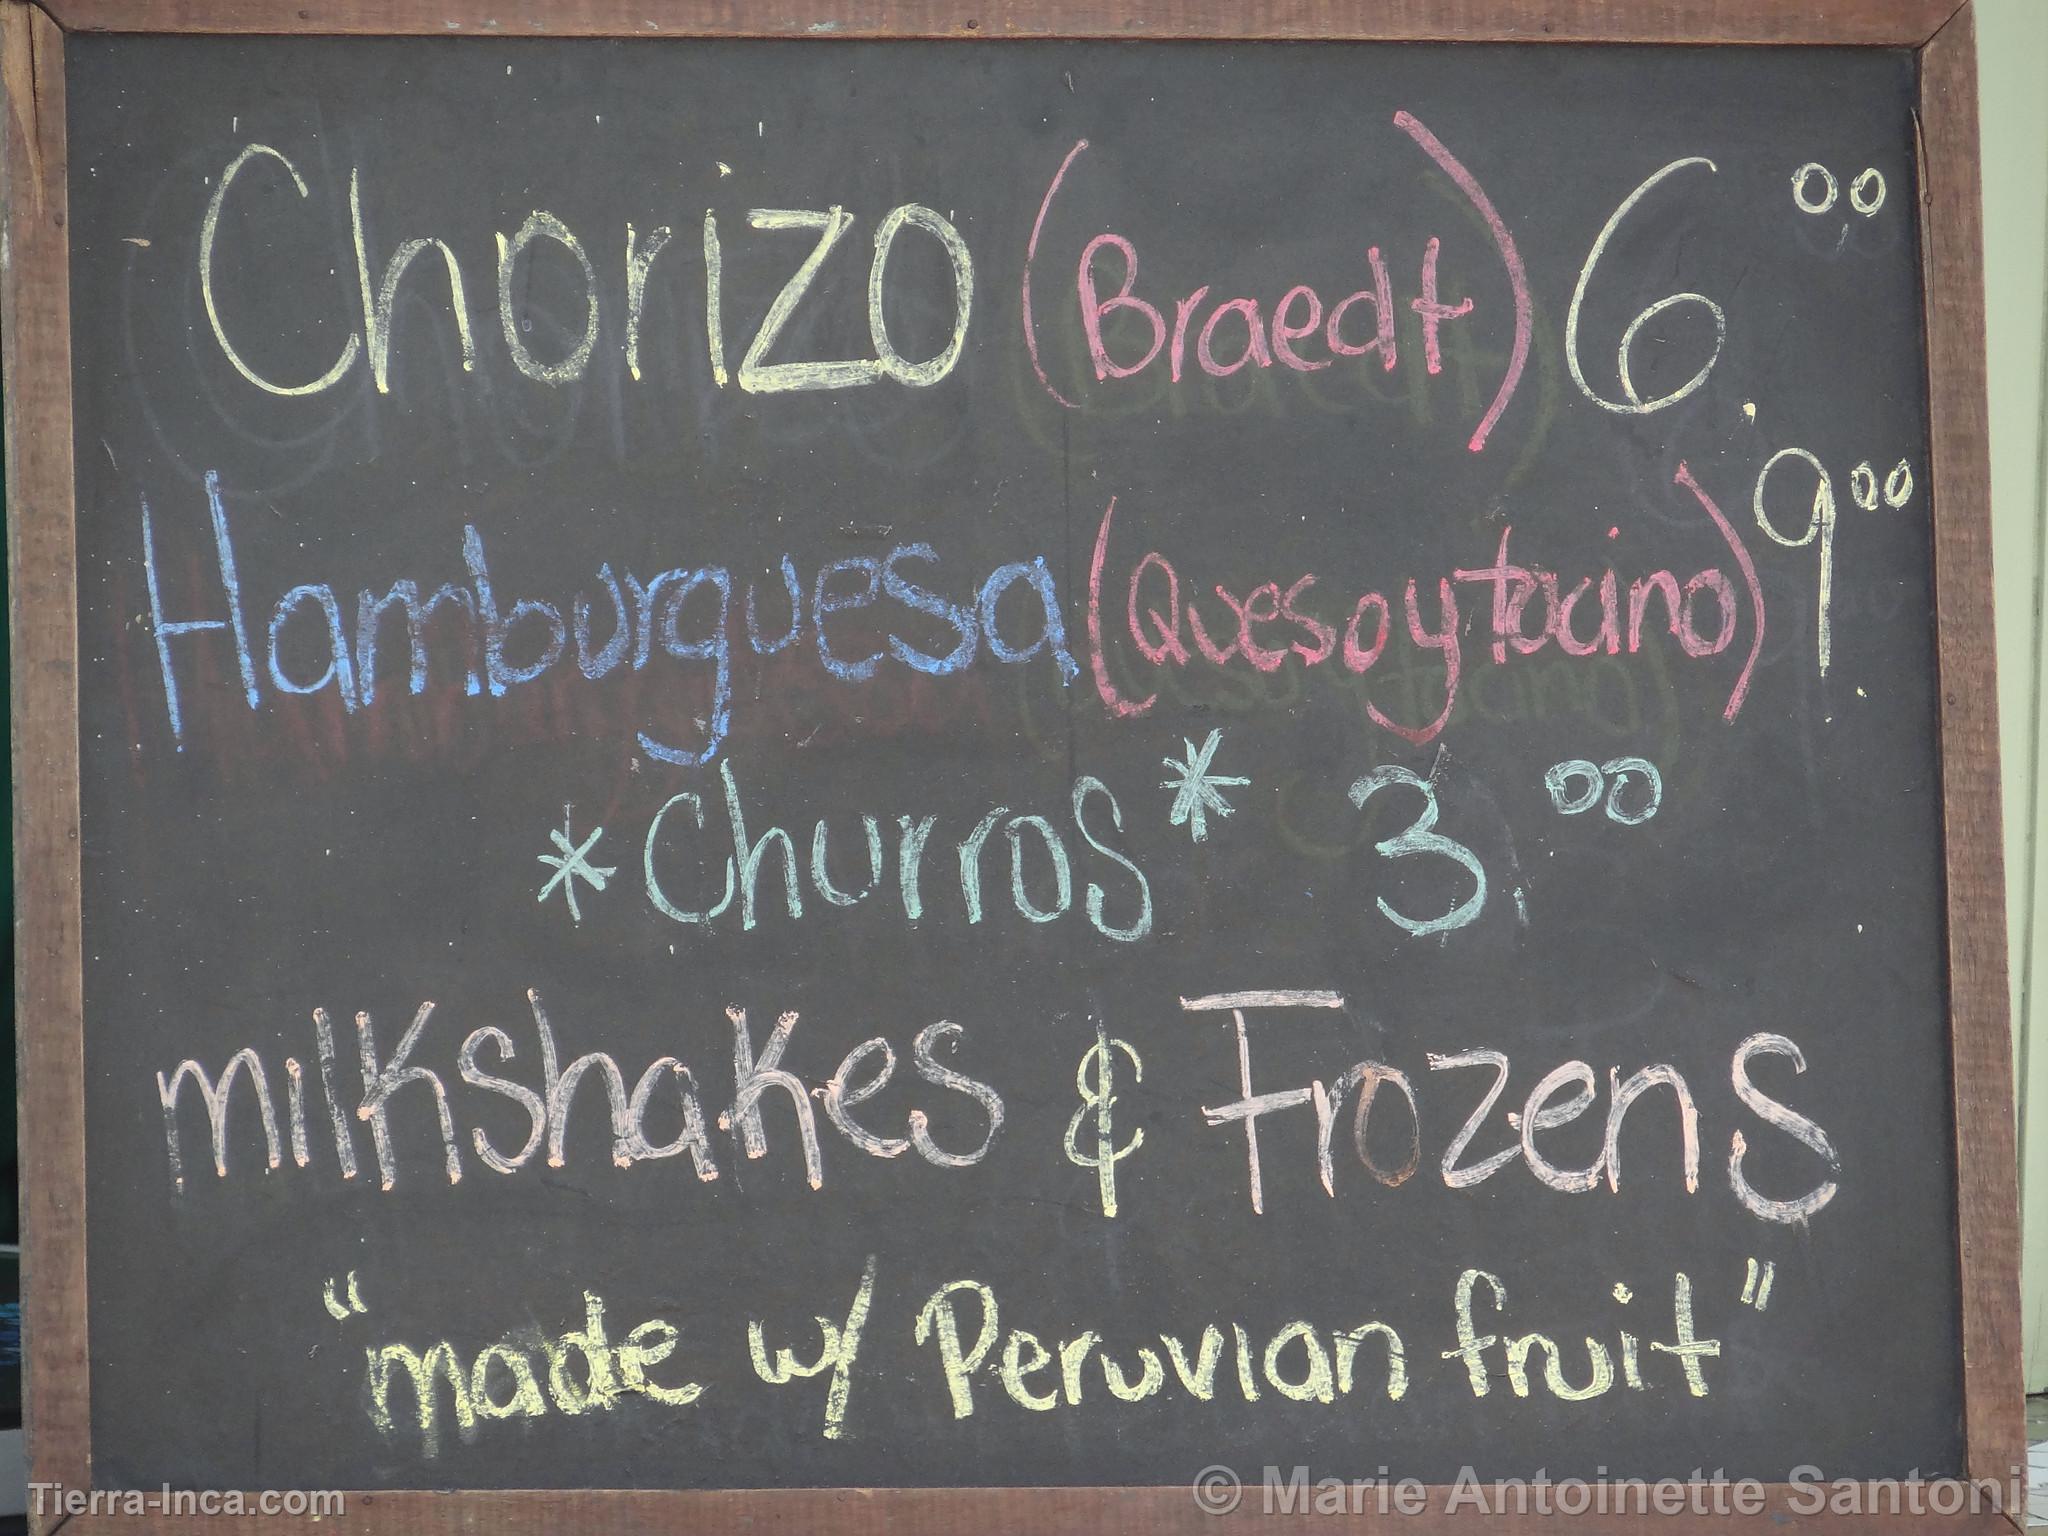 Chorizo (Braedt) 6.00
Hamburguesa (Queso y tocino) 9.00
*Churros* 3.00
milkshakes & Frozens
"made w/ Peruvian fruit"
Tierra-Inca.com
© Marie Antoinette Santoni